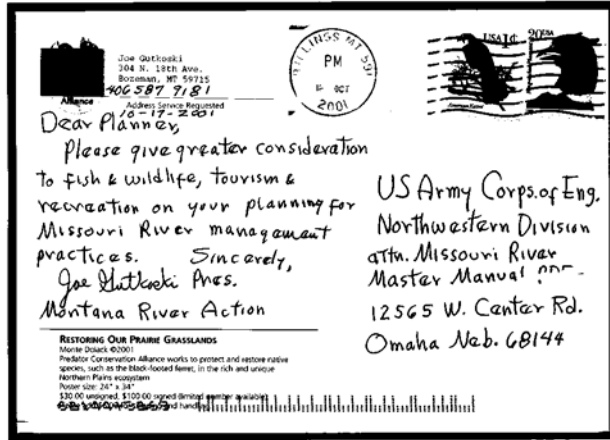 Joe Gutkoski
304 N. 18th Ave.
Bozeman, MT 59715
406 587 9181
Alliance
Address Service Requested
10-17-2001
BILLINGS MT 591
PM
OCT
2001
USA 1¢
20 USA
American Kestrel
Dear Planner,
Please give greater consideration
to fish & wildlife, tourism &
recreation on your planning for
Missouri River management
practices. Sincerely,
Joe Gutkoski Pres.
Montana River Action
US Army Corps. of Eng.
Northwestern Division
attn. Missouri River
Master Manual
12565 W. Center Rd.
Omaha Neb. 68144
RESTORING OUR PRAIRIE GRASSLANDS
Monte Dolack ©2001
Predator Conservation Alliance works to protect and restore native
species, such as the black-footed ferret, in the rich and unique
Northern Plains ecosystem
Poster size: 24" x 34"
$30.00 unsigned, $100.00 signed (limited number available)
and